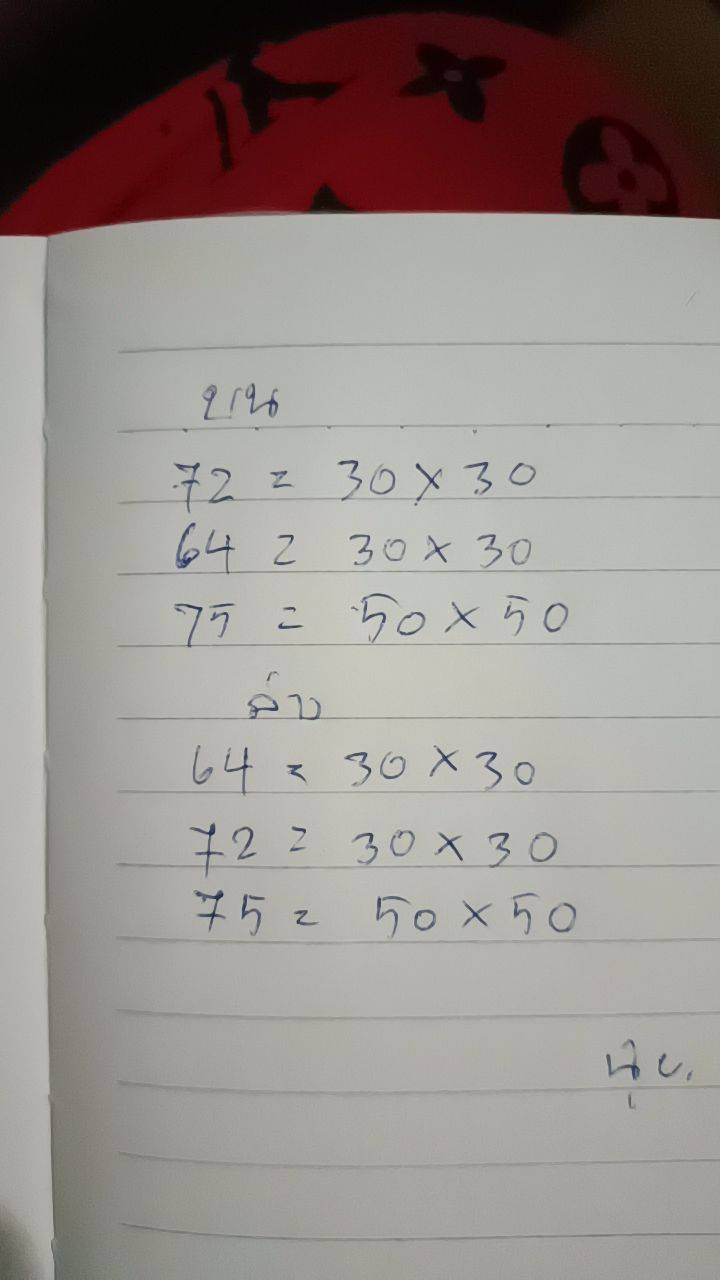 บน
72 = 30 x 30
64 = 30 x 30
75 = 50 x 50
ล่าง
64 = 30 x 30
72 = 30 x 30
75 = 50 x 50